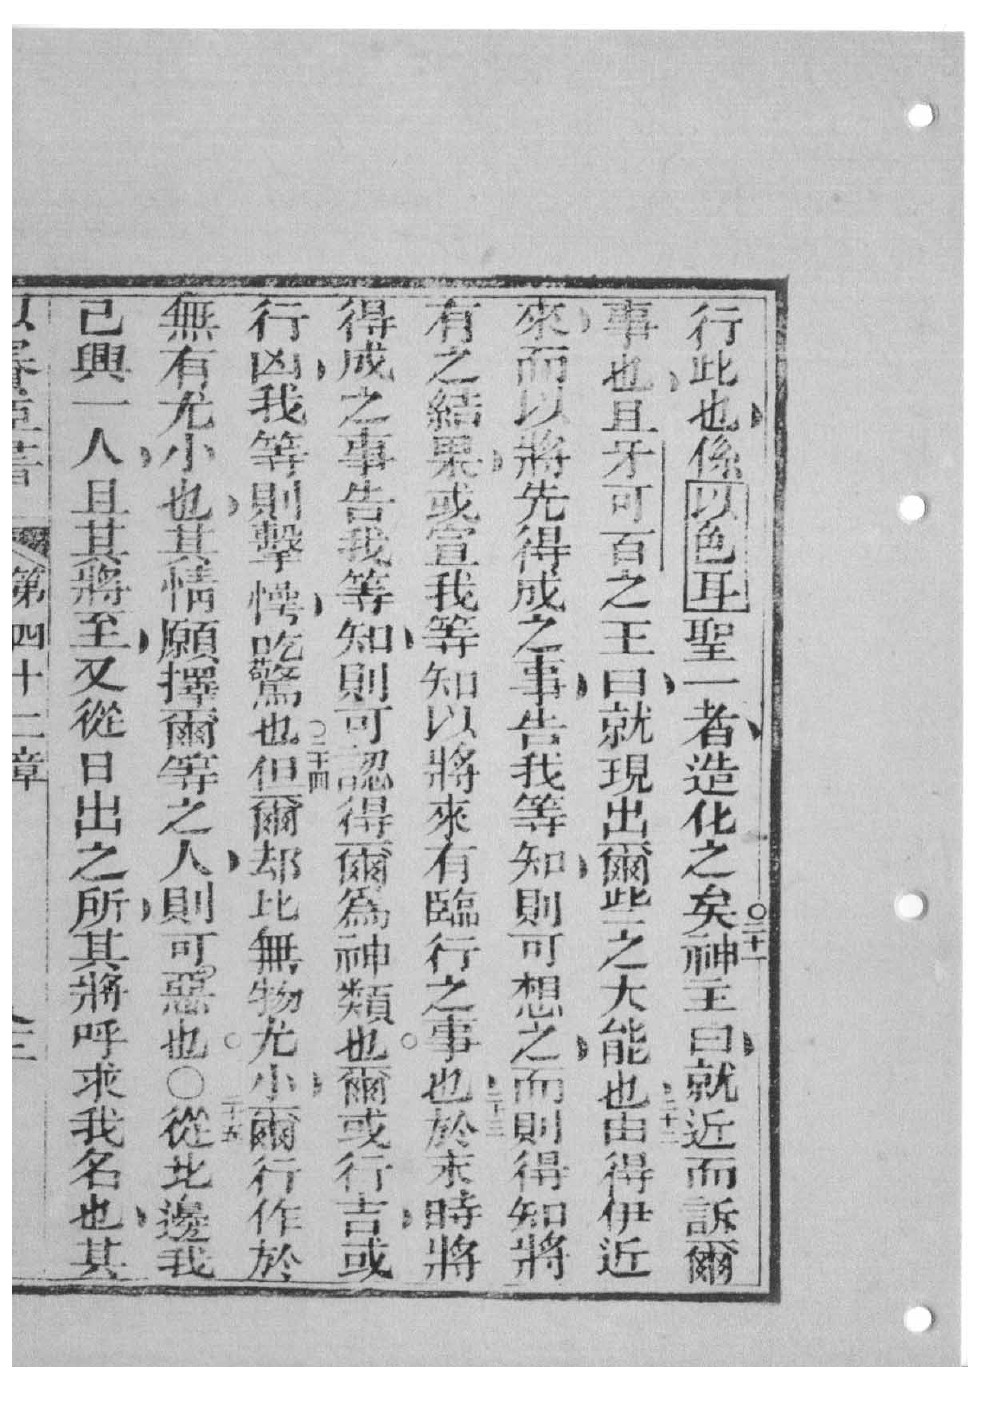 行此也係以色耳聖一者造化之矣神主曰就近而訴爾
〇二十一
事也且牙可百之王曰就現出爾些之大能也由得伊近
二十二
來而以將先得成之事告我等知則可想之而則得知將
有之結果或宣我等知以將來有臨行之事也於來時將
二十三
得成之事告我等知則可認得爾爲神類也爾或行吉或
行凶我等則擊愕吃驚也但爾却比無物尤小爾行作於
〇二十四
無有尤小也其情願擇爾等之人則可惡也〇從北邊我
二十五
己興一人且其將至又從日出之所其將呼求我名也其
以賽亞書 第四十二章 三